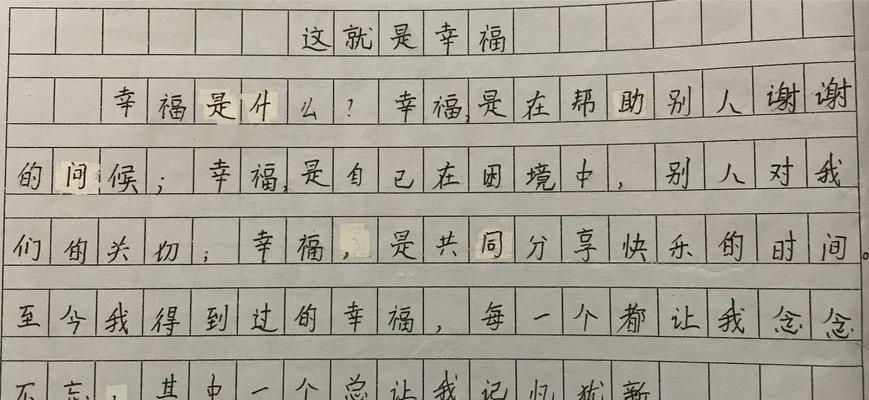 这就是幸福
幸福是什么？幸福，是在帮助别人谢谢
的问候；幸福，是自己在困境中，别人对我
们的关切；幸福，是共同分享快乐的时间。
至今我得到过的幸福，每一个都让我念念
不忘，其中一个总让我记忆犹新